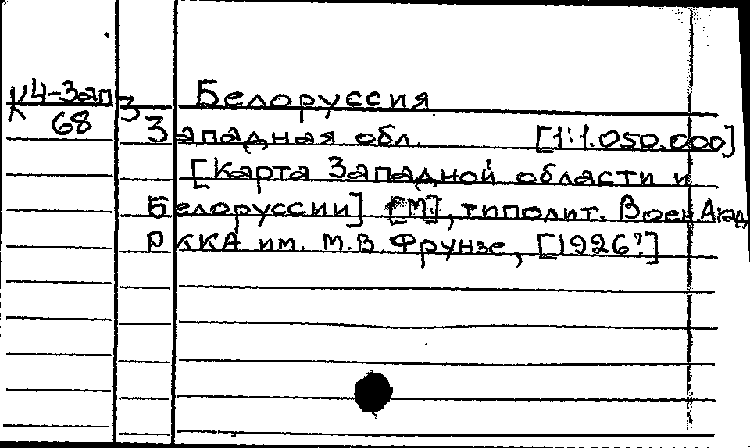 К 4-Зап
68
3
Белоруссия
Западная обл. [1:1.050.000]
[Карта Западной области и
Белоруссии] [М.], типолит. Воен.Акад.
РККА им. М.В. Фрунзе, [1926?]